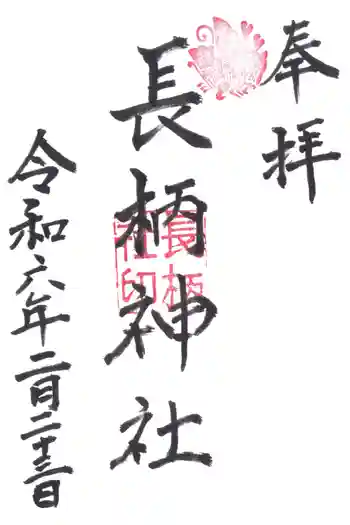 奉拝
長柄神社
長柄
社印
令和六年二月二十三日